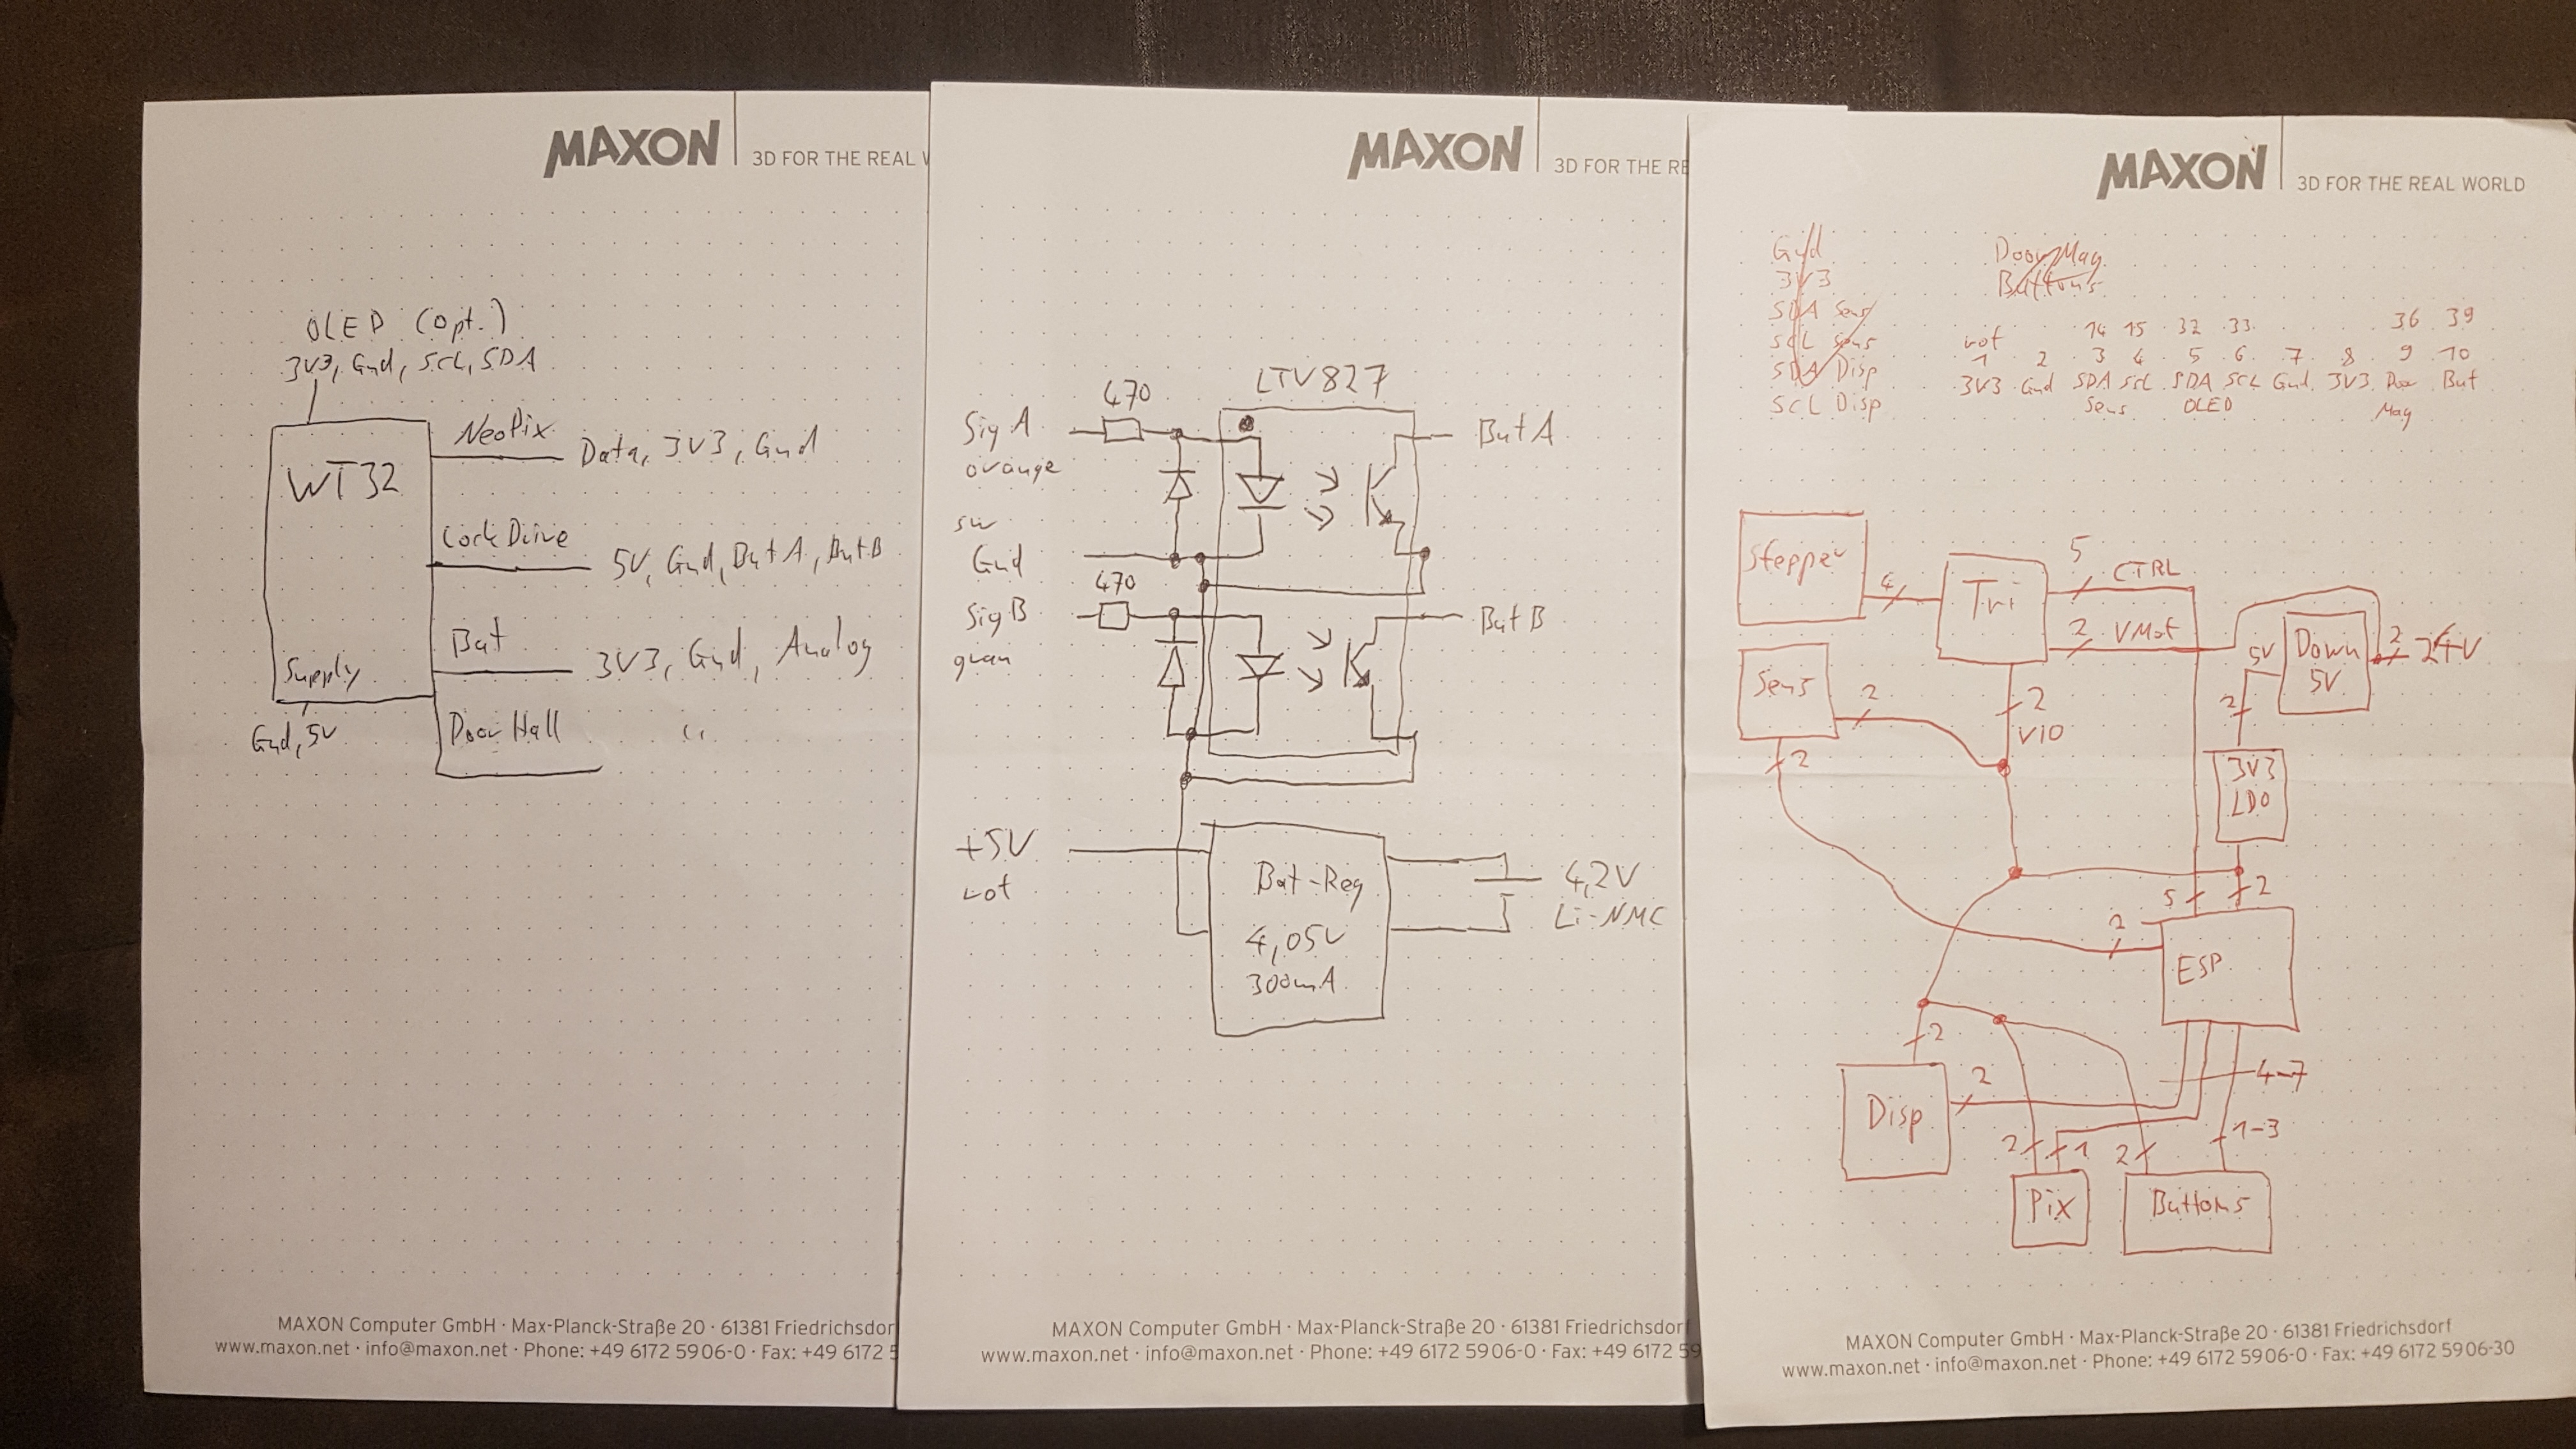 MAXON
3D FOR THE REAL W
OLED (opt.)
3V3, Gnd, SCL, SDA
WT32
Supply
Gnd, 5V
NeoPix
Data, 3V3, Gnd
LockDrive
5V, Gnd, ButA, ButB
Bat
3V3, Gnd, Analog
Door Hall
"
MAXON Computer GmbH · Max-Planck-Straße 20 · 61381 Friedrichsdor
www.maxon.net · info@maxon.net · Phone: +49 6172 5906-0 · Fax: +49 6172 5
MAXON
3D FOR THE RE
LTV827
470
Sig A
orange
But A
sw
Gnd
470
Sig B
But B
+5V
rot
Bat-Reg
4,05V
300mA
4,2V
Li-NMC
MAXON Computer GmbH · Max-Planck-Straße 20 · 61381 Friedrichsdorf
www.maxon.net · info@maxon.net · Phone: +49 6172 5906-0 · Fax: +49 6172 59
MAXON
3D FOR THE REAL WORLD
Gnd
3V3
SDA Sens
SCL Sens
SDA Disp
SCL Disp
Door Mag
Buttons
14 15 32 33 36 39
rot
1 2 3 4 5 6 7 8 9 10
3V3 Gnd SDA SCL SDA SCL Gnd 3V3 Door But
Sens OLED Mag
Stepper
4
Tri
5 CTRL
2 VMot
5V
Down
5V
2
24V
Sens
2
2
2
VIO
2
3V3
LDO
5
2
2
ESP
2
Disp
2
4-7
2
1
2
1-3
Pix
Buttons
MAXON Computer GmbH · Max-Planck-Straße 20 · 61381 Friedrichsdorf
www.maxon.net · info@maxon.net · Phone: +49 6172 5906-0 · Fax: +49 6172 5906-30